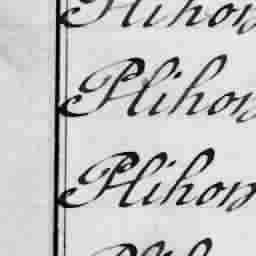 Plihon
Plihon
Plihon